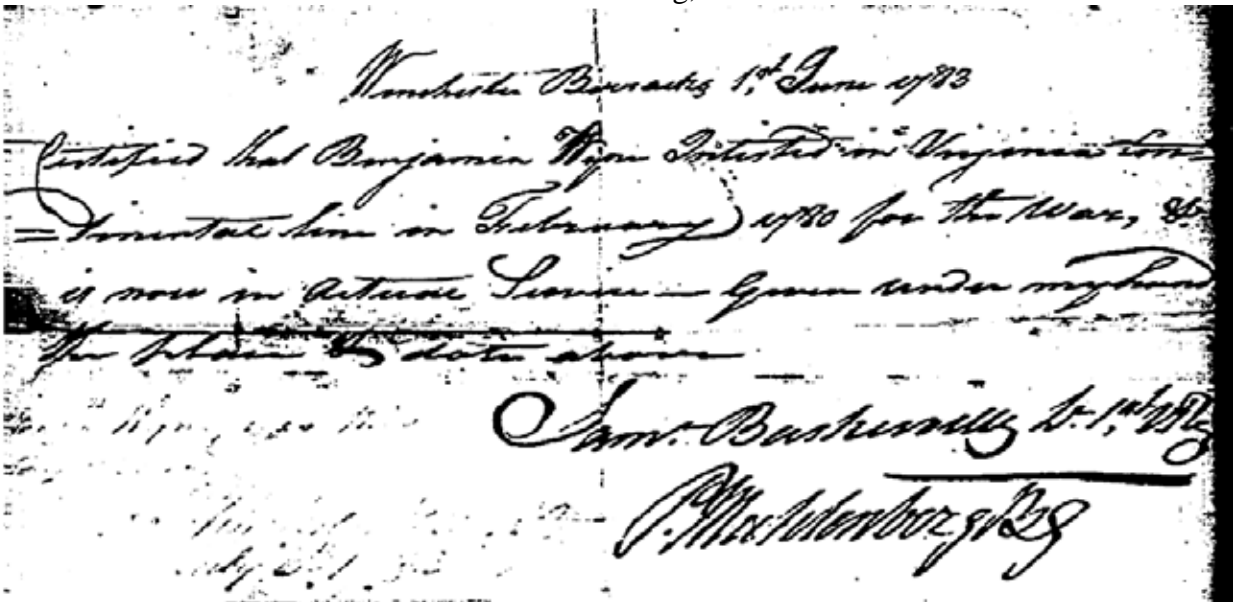 Winchester Barracks 1st June 1783
Certified that Benjamin Wynn Inlisted in Virginia Con=
=tinental line in February 1780 for the War, &
is now in actual Service — Given under my hand
the place & date above
Saml. Baskerville Lt. 1st
P. Muhlenberg BG